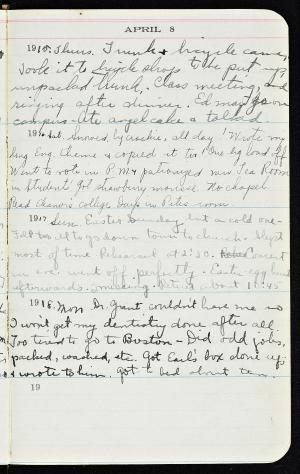 APRIL 8
1915. Thurs. Trunk & bicycle came,
Took it to bicycle shop to be put up,
unpacked trunk, Class meeting, and
singing after dinner. Ed may go on
campus. Ate angel cake & talked.
1916 Sat. Snowed, by crackie, all day! Wrote my
long Eng. theme & copied it too! One big load off
Went to vote in P.M. & patronized new Tea Room
in Students'. Got strawberry mousse. No chapel.
Read Chanvis College Days in Pete's room.
1917 Sun. Easter Sunday but a cold one—
Felt too ill to go down town to church. Slept
most of time. Rehearsal at 2:30. Concert
in eve. went off perfectly. Easter egg hunt
afterwards. about 11:45
1918. Mon. Dr. Grant couldn't have me so
I won't get my dentistry done after all.
Too tired to go to Boston — Did odd jobs,
packed, washed, etc. Got Earl's box done up
& wrote to him. Got to bed about ten.
19